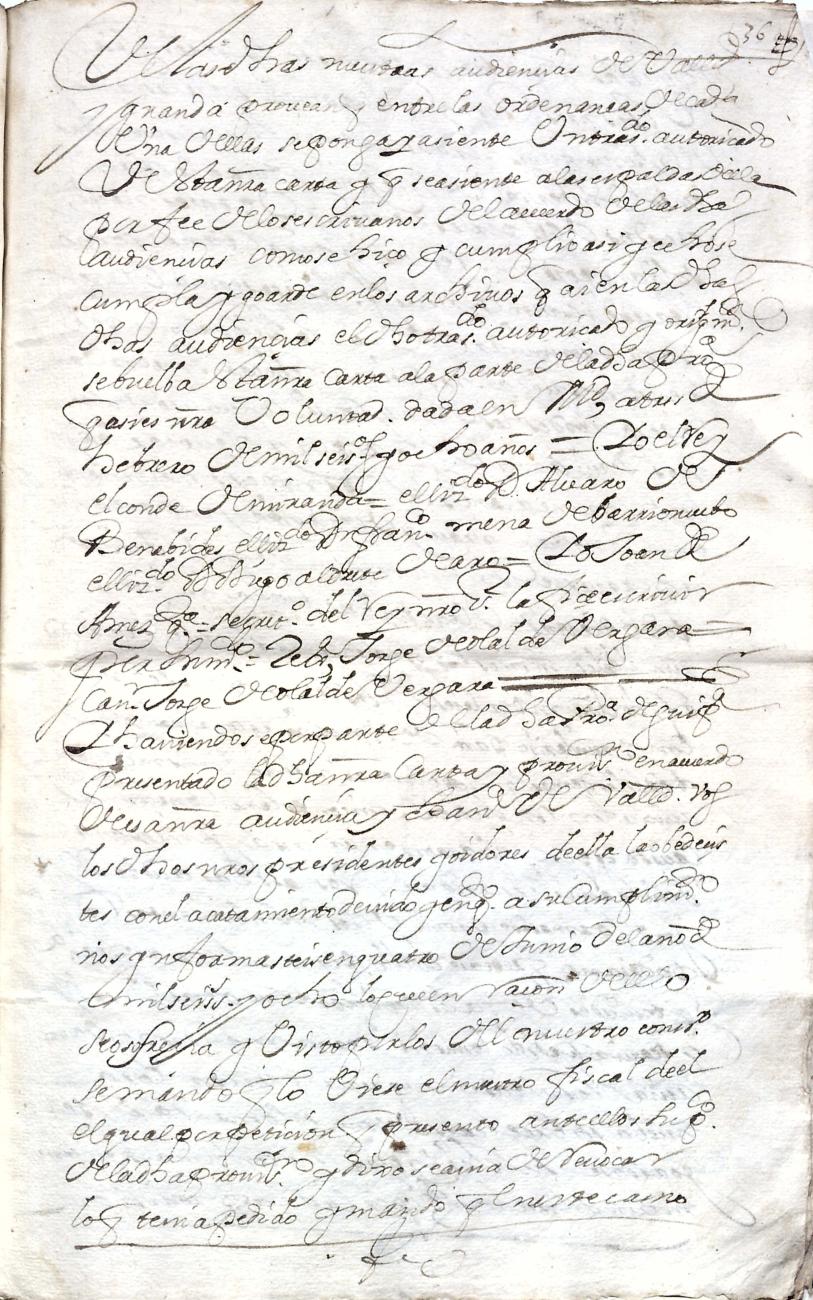 36
de las dhas nuestras audiencias de Vallid
y granada provean q entre las ordenanças de cada
Una dellas se ponga y asiente Un traso autoricado
de esta nra carta y q se asiente a las espaldas della
por fee de los escrivanos del acuerdo de las dhas
audiencias como se hiço y cumplio asi y echo se
cumpla y goarde en los archivos q ai en las dhas
dhas audiencias el dho traso autoricado y orixinl
se buelba esta nra carta a la parte de la dha proa
q asi es nra Voluntad. dada en Md a tres de
hebrero de mil seis os y ocho años = Yo el Rey
el conde de miranda = el lizdo D. Alvaro de
Benabides el lizdo Don franco mena de barrionuebo
el lizdo D Diego aldrete de aro = Yo Joan de
Amezqa = secreto del Rey nro sr la fice escrivir
por su mdo = Jorge de olalde Vergara =
Can. Jorge de olalde Vergara
Y haviendose por parte de la dha proa de guipa
presentado la dha nra Carta y provon en acuerdo
de esa nra audiencia y chanra de Valld. vos
los dhos nros presidentes y oidores de ella la obedeçis
tes con el acatamiento devido y en qto a su cumplimto
nos ynformasteis en quatro de Junio del año de
mil seiss y ocho lo que en raçon dello
se os ofrecia y Visto por los del nuestro conso
se mando q lo Viese el nuestro fiscal de el
el qual por peticion q presento ante ellos supco
de la dha provon y dixo se avia de Revocar
lo q tenia pedido y mando q en este caso